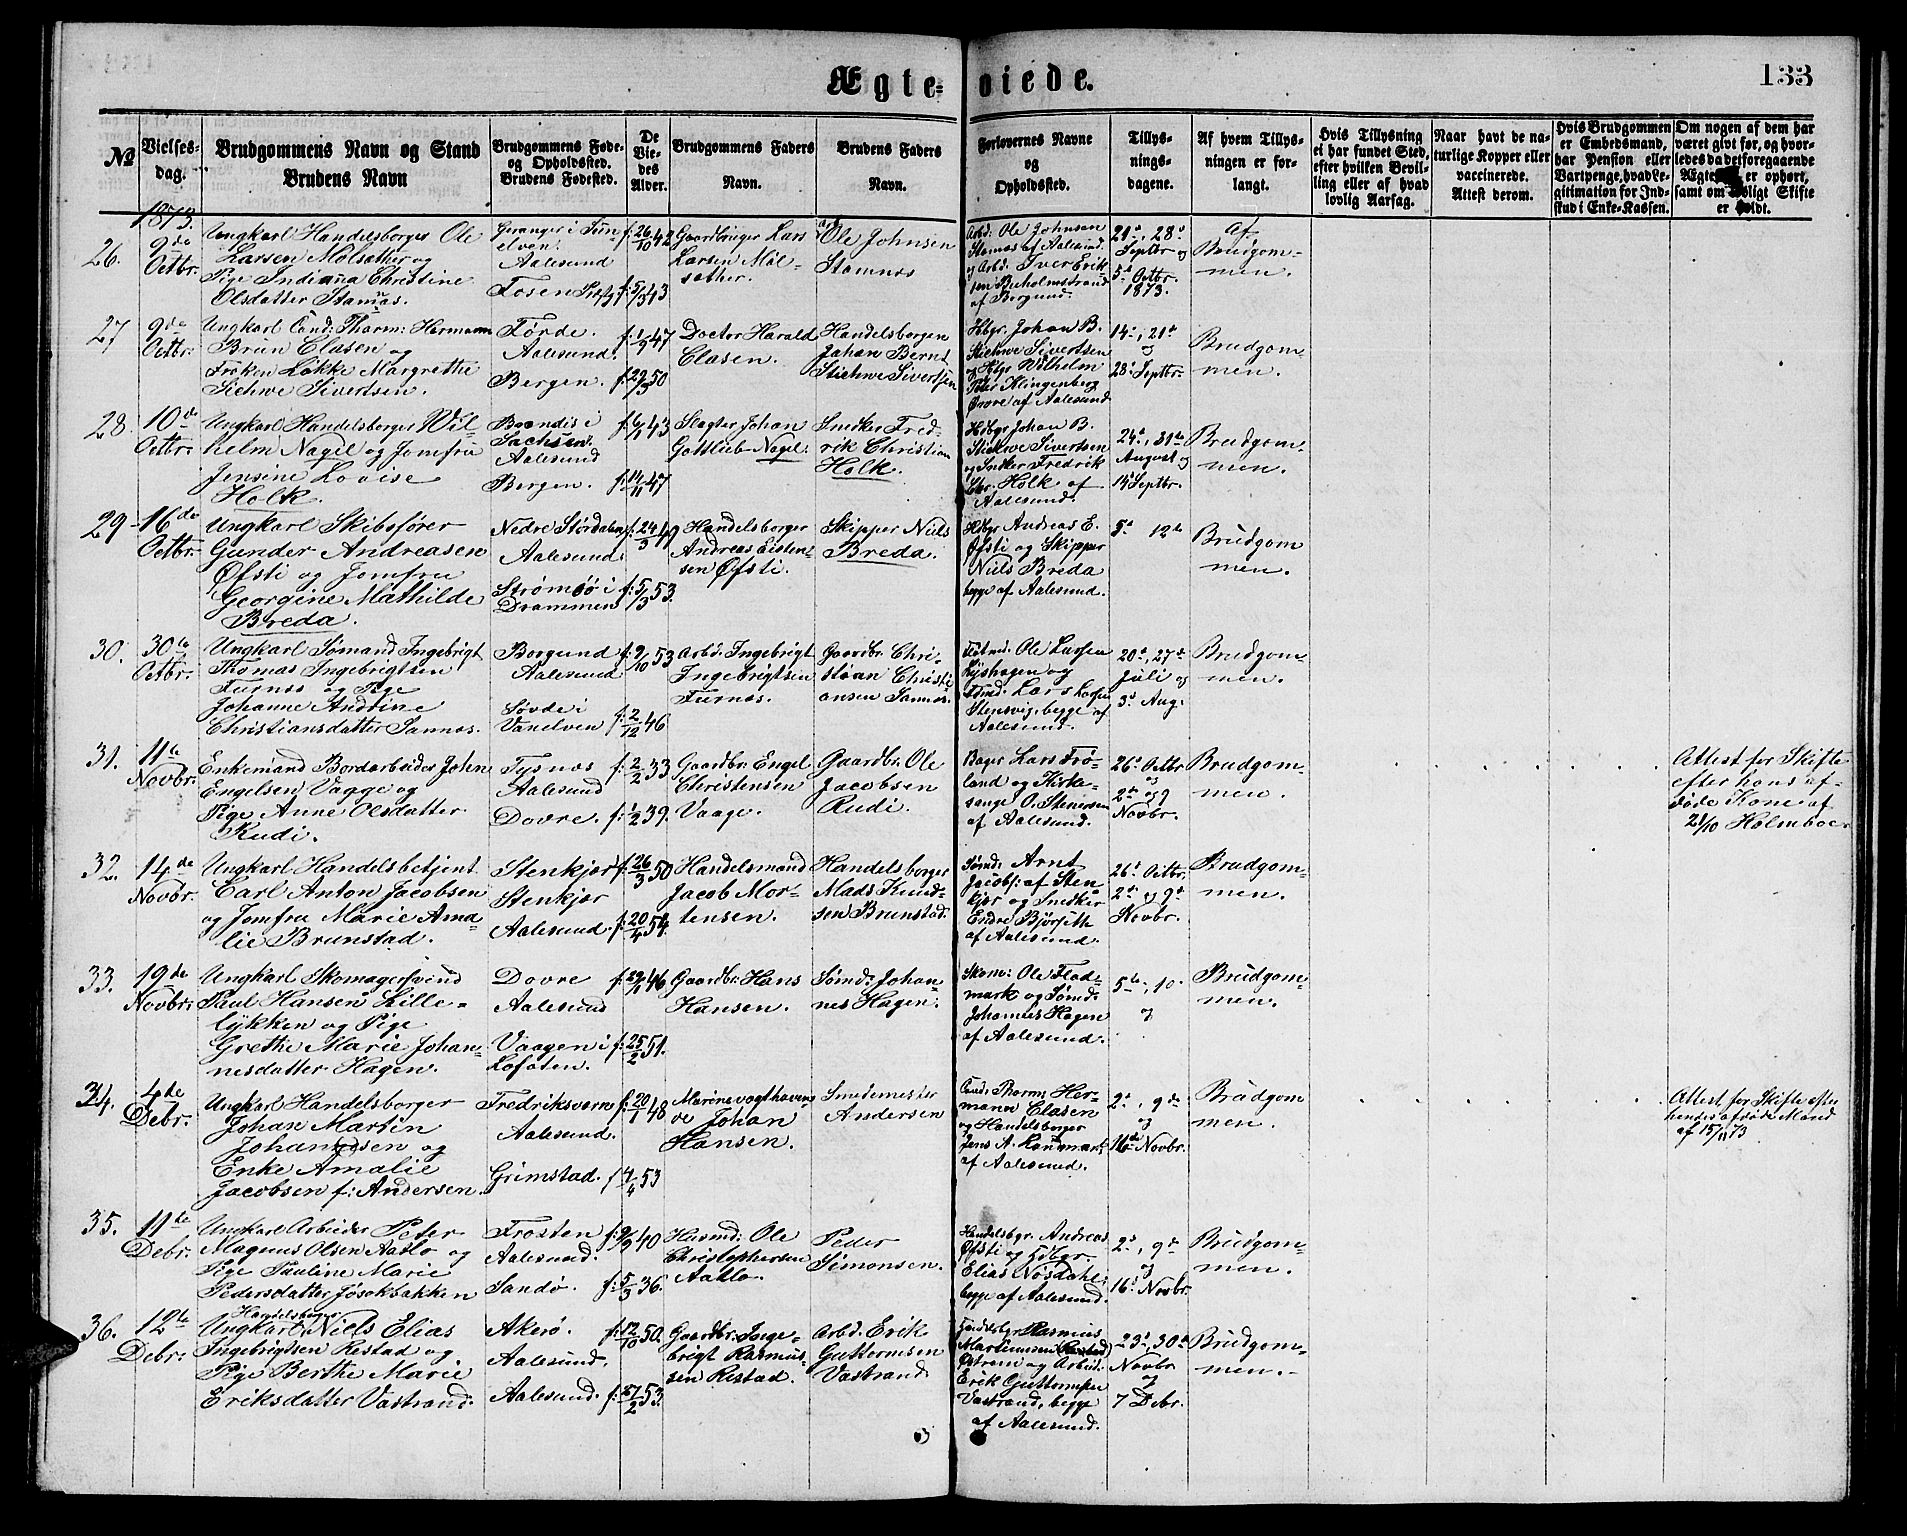 Ægte-viede.
133
№
Vielses-dag.
Brudgommens Navn og Stand
Brudens Navn
Brudgommens Føde-
og Opholdssted.
Brudens Fødested.
De
Vie-
des
Alder.
Brudgommens Faders
Navn.
Brudens Faders
Navn.
Forlovernes Navne
og
Opholdssted.
Tillys-
nings-
dagene.
Af hvem Tillys-
ningen er for-
langt.
Hvis Tillysning
ei har fundet Sted,
efter hvilken Bevil-
ling eller af hvad
lovlig Aarsag.
Naar havt de na-
turlige Kopper eller
vaccinerede.
Attest derom.
Hvis Brudgommen
er Embedsmand,
har Pension eller
Vartpenge, hvad Le-
gitimation for Ind-
skud i Enke-Kassen.
Om nogen af dem har
været givt før, og hvor-
ledes da det foregaaende
er ophørt,
samt om Skifte
er holdt.
1873.
26.
9de
Octbr.
Ungkarl Handelsborger Ole
Larsen Molsæther og
Pige Indianna Christine
Olsdatter Stamnæs.
Geranger i
Aalesund
Fosen
f: 26/10 42
f: 5/3 43
Gaardbruger Lars
Larsen Møl-
sæther.
Ole Johnsen
Stamnæs
Arbd: Ole Johnsen
Stamnæs af Aalesund
og Arbd. Iver Erik-
sen
af Borgund.
21d, 28d
Septbr og
5d Octbr.
1873.
af
Brudgom-
men.
27
9de
Octbr:
Ungkarl Cand: Tharm: Hermann
Brun Clasen og
Frøken Løkke Margrethe
Stehwe Sivertsen.
Førde.
Aalesund.
Bergen.
f: 1/9 47
f: 29/3 50
Doctor Harald
Clasen.
Handelsborgen
Johan Bernt
Stiehwe Sivertsen
Hbgr. Johan B.
Stiehwe Sivertsen
og Hbgr Wilhelm
Peter Klingenberg
af Aalesund
14d, 21d
og
28d Septbr.
Brudgom-
men.
28.
10de
Octbr.
Ungkarl Handelsborger Wil-
helm Nagel og Jomfru
Jensine Lovise
Holk.
Brandis i
Sachsen.
Aalesund
Bergen.
43
f: 14/11 47
Slagter Johan
Gottlieb Nagel.
Snedker Fred-
rik Christian
Holk.
Hdbgr Johan B.
Stiehwe Sivertsen
og Snedker Fredrik
Chr. Holk af
Aalesund.
24d, 31te
August og
14 Septbr.
Brudgom-
men.
29
16de
Octbr.
Ungkarl Skibsfører
Gunder Andreasen
Øfsti og Jomfru
Georgine Mathilde
Breda.
Nedre Stördalen
Aalesund.
Strømsö i
Drammen
f: 24/3 49
f: 5/3 53.
Handelsborger
Andreas Eisten-
sen Øfsti.
Skipper Niels
Breda.
Hdbgr Andreas E.
Øfsti og Skipper
Niels Breda
begge af Aalesund.
5d 12te
Brudgom
men.
30.
30te
Octbr.
Ungkarl Sømand Ingebrigt
Thomas Ingebrigtsen
Furnæs og Pige
Johanne Andrine
Christiansdatter Sannæs.
Borgund
Aalesund
Søvde i
Vanelven
f: 9/10 53
f: 2/12 46
Arbd. Ingebrigt
Ingebrigtsen
Furnæs.
Gaardbr. Chri-
stian Christi
ansen Sannæs.
Ole Larsen
og
Lars Larsen
Stensvig, begge af
Aalesund.
20d, 27de
Juli og
3d Aug.
Brudgom-
men.
31.
11te
Novbr.
Enkemand Bordarbeider John
Engelsen Vaage og
Pige Anne Olsdatter
Rudi.
Tysnæs
Aalesund
Dovre.
f: 2/2 33
f: 1/2 39.
Gaardbr. Engel
Christensen
Vaage.
Gaardbr. Ole
Jacobsen
Rudi.
Bager Lars Frø-
land og Kirke-
sange O. Stenersen
af Aalesund.
26d Octbr
og
2den og 9
Novbr.
Brudgom-
men.
Attest for Skifte
efter hans af-
døde Kone af
21/10 Holmboe.
32.
14de
Novbr.
Ungkarl Handelsbetjent
Carl Anton Jacobsen
og Jomfru Marie Ama-
lie Brunstad.
Stenkjær
Stenkjær
Aalesund.
f: 26/3 50
f: 20/4 54.
Handelsmand
Jacob Mor-
tensen.
Handelsborger
Mads Knud-
sen Brunstad.
Sømd: Arnt
Jacobs: af Sten
kjær og Snedker
Endre Bjørseth
af Aalesund.
26d Octbr.
2d og 9d
Novbr.
Brudgom-
men.
33.
19de
Novbr.
Ungkarl Skomagersvend
Paul Hansen Lille-
lykken og Pige
Grethe Marie Johan-
nesdatter Hagen.
Dovre
Aalesund
Vaagen i
Lofoten.
46
f: 25/2 51.
Gaardbr. Hans
Hansen.
Sømd: Johan-
nes Hagen.
Skom: Ole Flad-
mark og Sømd:
Johannes Hagen
af Aalesund.
5te, 10
og
Brudgom-
men.
34.
4de
Debr.
Ungkarl Handelsborger
Johan Martin
Johannesen og
Enke Amalie
Jacobsen f: Andersen.
Fredriksværn
Aalesund.
Grimstad.
f: 20/1 48
f 4/4 53
Johan
Hansen.
Smedemester
Andersen
Cand: Tharm: Her-
mann Clasen
og Handelsborger
Jens A.
af Aalesund.
2d, 9de
og
16de Novbr.
Brudgom
men.
Attest for Skifte efter
hendes afdøde Mand
af 15/11 73
35.
11te
Debr.
Ungkarl Arbeider Peter
Magnus Olsen Aatlo og
Pige Pauline Marie
Pedersdatter Jøsokbakken
Frosten
Aalesund.
Sandø.
f: 9/9 40
f: 5/3 36.
Husmd: Ole
Christophersen
Aatlo.
Peder
Simonsen.
Handelsbgr. Andreas
Øfsti og Hdbgr.
Elias Nøsdahl,
begge af Aalesund.
2d, 9de
og
16d Novbr.
Brudgom-
men.
36.
12te
Debr.
Handelsborger
Ungkarl Niels Elias
Ingebrigtsen Restad og
Pige Berthe Marie
Eriksdatter Vastrand.
Akerø.
Aalesund.
Aalesund.
f: 12/10 50.
53.
Gaardbr. Inge-
brigt Rasmus-
sen Restad.
Arbd. Erik
Guttormsen
Vastrand
Handelsbgr. Rasmus
Martinusen
og Arbeid.
Erik Guttormsen
Vastrand, begge
af Aalesund.
23d, 30te
Novbr
og
7 Debr.
Brudgom-
men.